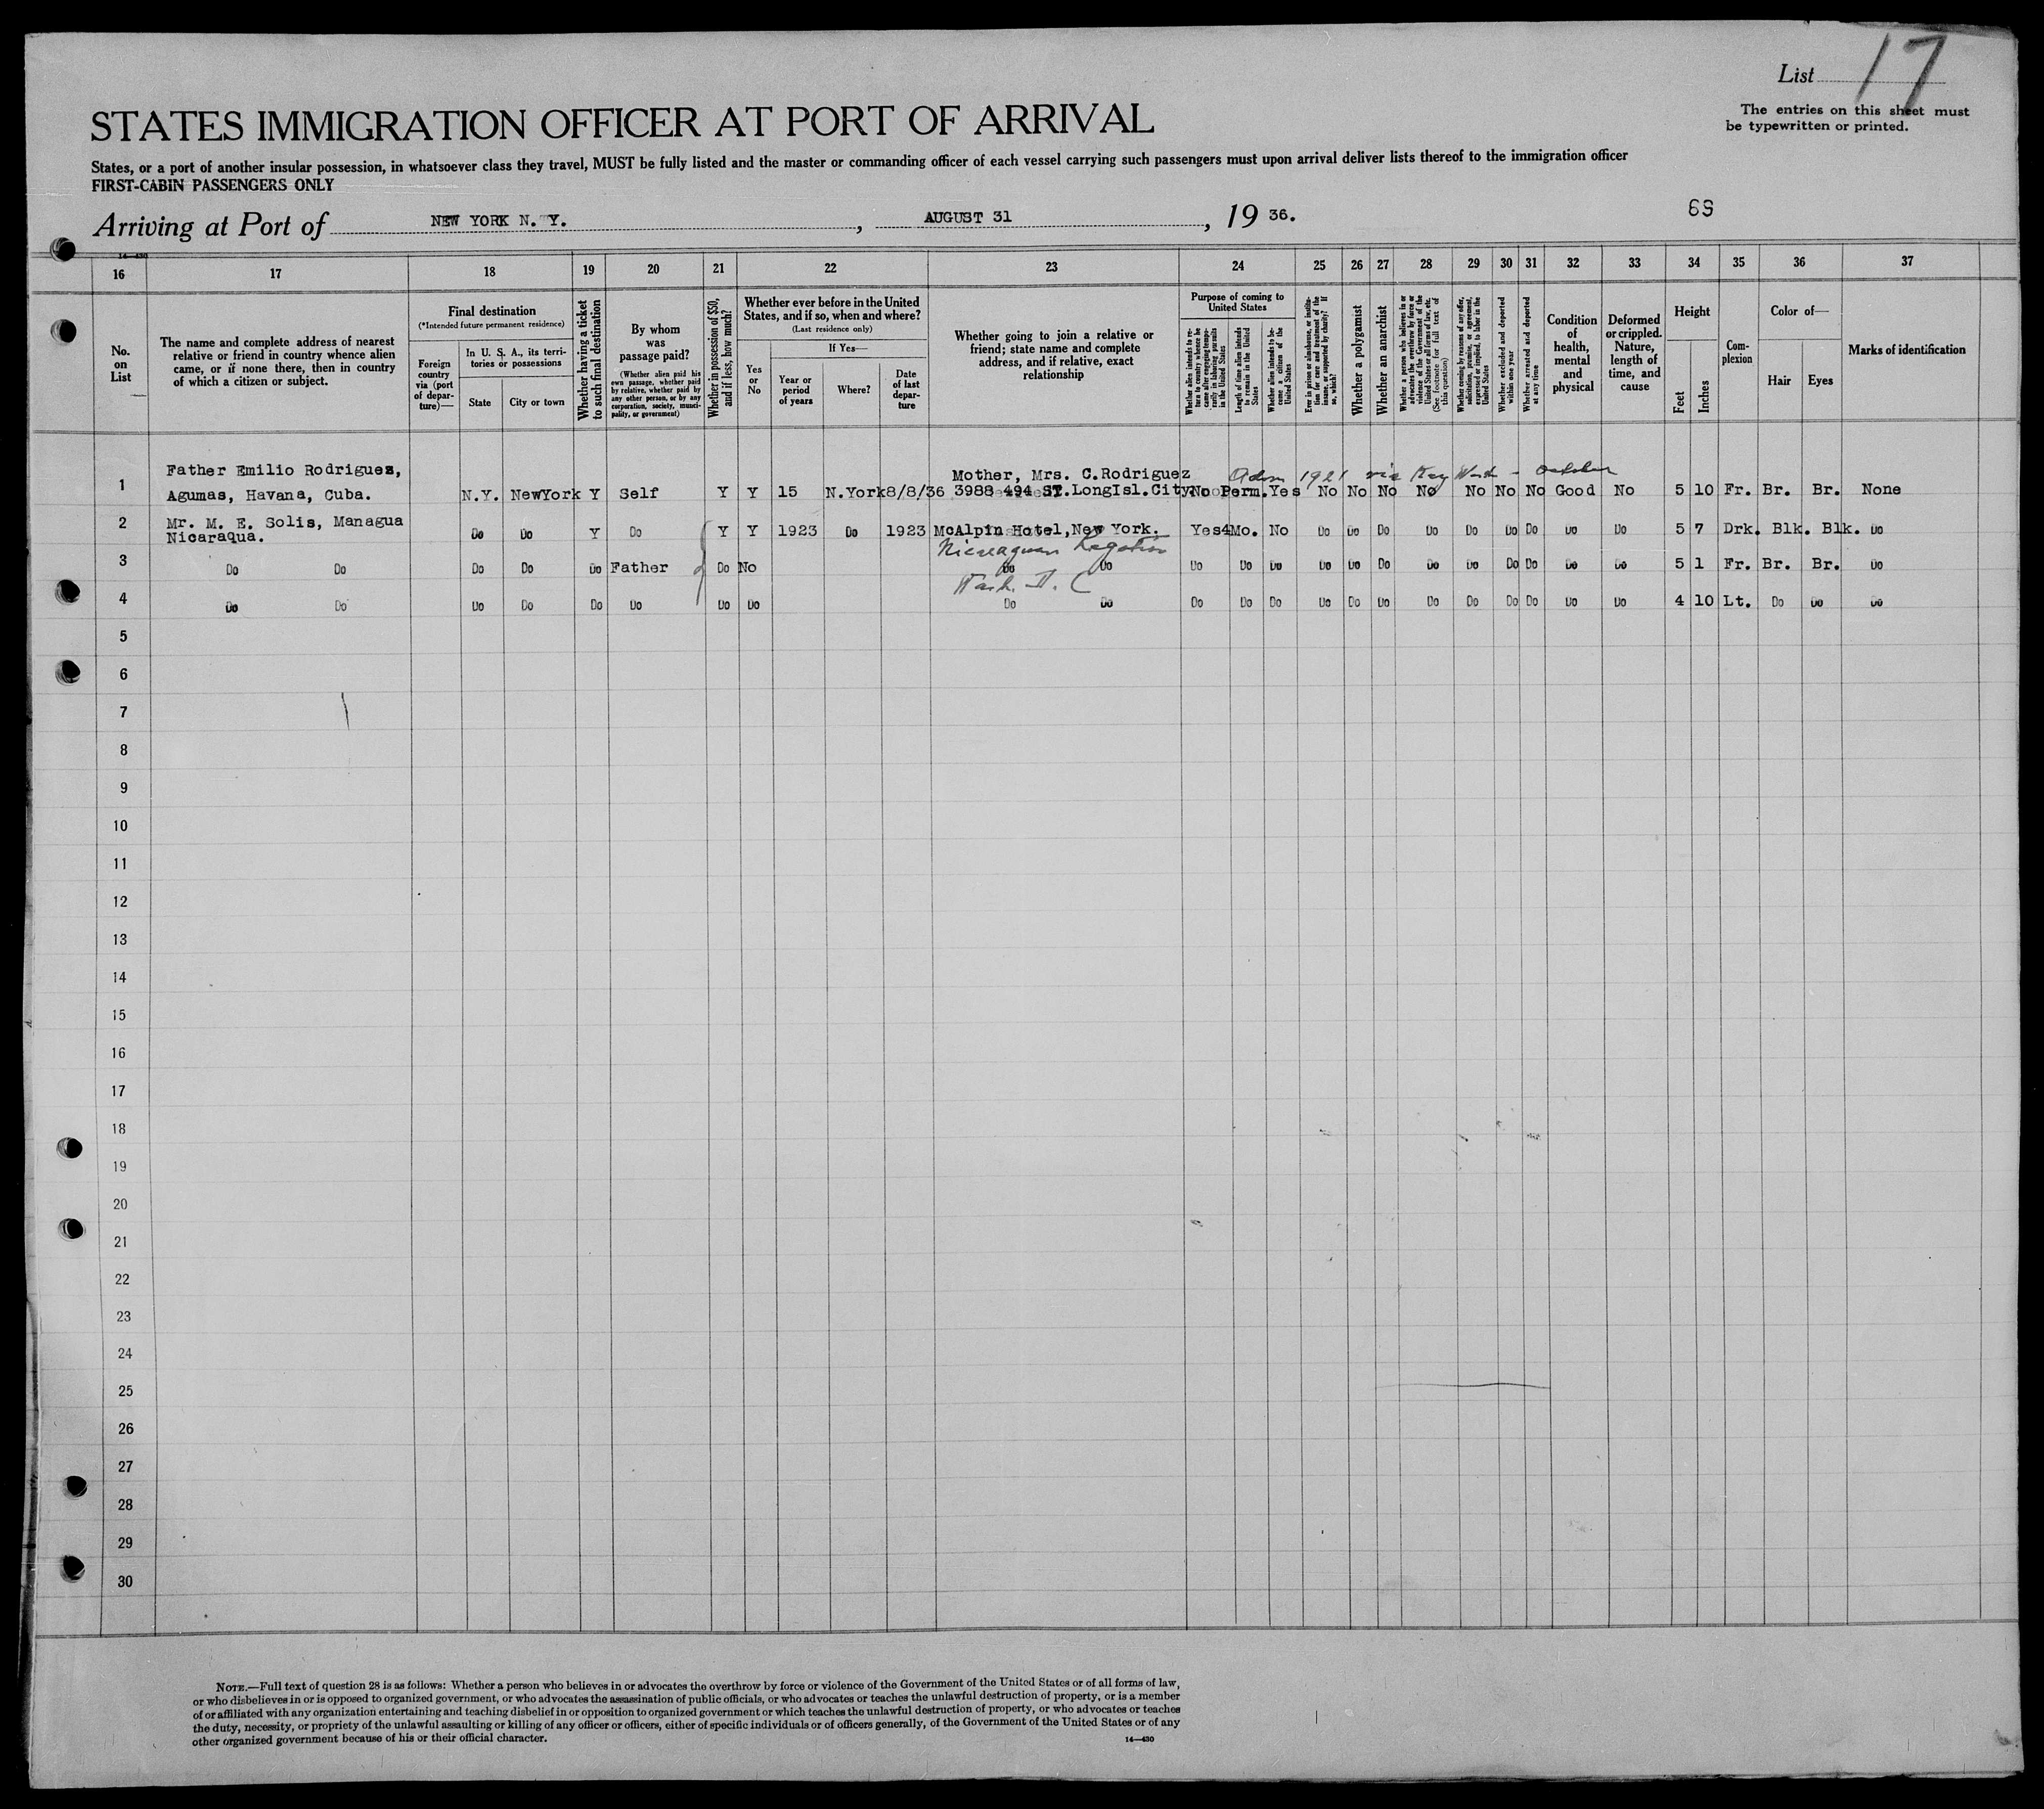 List 17
The entries on this sheet must
be typewritten or printed.
STATES IMMIGRATION OFFICER AT PORT OF ARRIVAL
States, or a port of another insular possession, in whatsoever class they travel, MUST be fully listed and the master or commanding officer of each vessel carrying such passengers must upon arrival deliver lists thereof to the immigration officer
FIRST-CABIN PASSENGERS ONLY
Arriving at Port of NEW YORK N. Y. , AUGUST 31 , 19 36.
69
14—430
16 17 18 19 20 21 22 23 24 25 26 27 28 29 30 31 32 33 34 35 36 37
No. on List
The name and complete address of nearest relative or friend in country whence alien came, or if none there, then in country of which a citizen or subject.
Final destination
(*Intended future permanent residence)
Foreign country via (port of departure)—
In U. S. A., its territories or possessions
State
City or town
Whether having a ticket to such final destination
By whom was passage paid?
(Whether alien paid his own passage, whether paid by relative, whether paid by any other person, or by any corporation, society, municipality, or government)
Whether in possession of $50, and if less, how much?
Whether ever before in the United States, and if so, when and where?
(Last residence only)
Yes or No
If Yes—
Year or period of years
Where?
Date of last departure
Whether going to join a relative or friend; state name and complete address, and if relative, exact relationship
Purpose of coming to United States
Whether alien intends to return to country whence he came after engaging temporarily in laboring pursuits in the United States
Length of time alien intends to remain in the United States
Whether alien intends to become a citizen of the United States
Ever in prison or almshouse, or institution for care and treatment of the insane, or supported by charity? If so, which?
Whether a polygamist
Whether an anarchist
Whether a person who believes in or advocates the overthrow by force or violence of the Government of the United States or all forms of law, etc. (See footnote for full text of this question)
Whether coming by reasons of any offer, solicitation, promise, or agreement, expressed or implied, to labor in the United States
Whether excluded and deported within one year
Whether arrested and deported at any time
Condition of health, mental and physical
Deformed or crippled. Nature, length of time, and cause
Height
Feet
Inches
Complexion
Color of—
Hair
Eyes
Marks of identification
Father Emilio Rodrigues, Mother, Mrs. C.Rodriguez 1921 via Key West - October
1 Agumas, Havana, Cuba. N.Y. NewYork Y Self Y Y 15 N.York 8/8/36 3988 494 ST.LongIsl.City No Perm. Yes No No No No No No No Good No 5 10 Fr. Br. Br. None
2 Mr. M. E. Solis, Managua Do Do Y Do Y Y 1923 Do 1923 McAlpin Hotel,New York. Yes 4Mo. No Do Do Do Do Do Do Do Do Do 5 7 Drk. Blk. Blk. Do
Nicaraqua.
Nicaraguan Legation
3 Do Do Do Do Do Father Do No Do Do Do Do Do Do Do Do Do Do Do Do Do Do 5 1 Fr. Br. Br. Do
Wash. D. C
4 Do Do Do Do Do Do Do Do Do Do Do Do Do Do Do Do Do Do Do Do Do Do 4 10 Lt. Do Do Do
5
6
7
8
9
10
11
12
13
14
15
16
17
18
19
20
21
22
23
24
25
26
27
28
29
30
NOTE.—Full text of question 28 is as follows: Whether a person who believes in or advocates the overthrow by force or violence of the Government of the United States or of all forms of law,
or who disbelieves in or is opposed to organized government, or who advocates the assassination of public officials, or who advocates or teaches the unlawful destruction of property, or is a member
of or affiliated with any organization entertaining and teaching disbelief in or opposition to organized government or which teaches the unlawful destruction of property, or who advocates or teaches
the duty, necessity, or propriety of the unlawful assaulting or killing of any officer or officers, either of specific individuals or of officers generally, of the Government of the United States or of any
other organized government because of his or their official character.
14—430